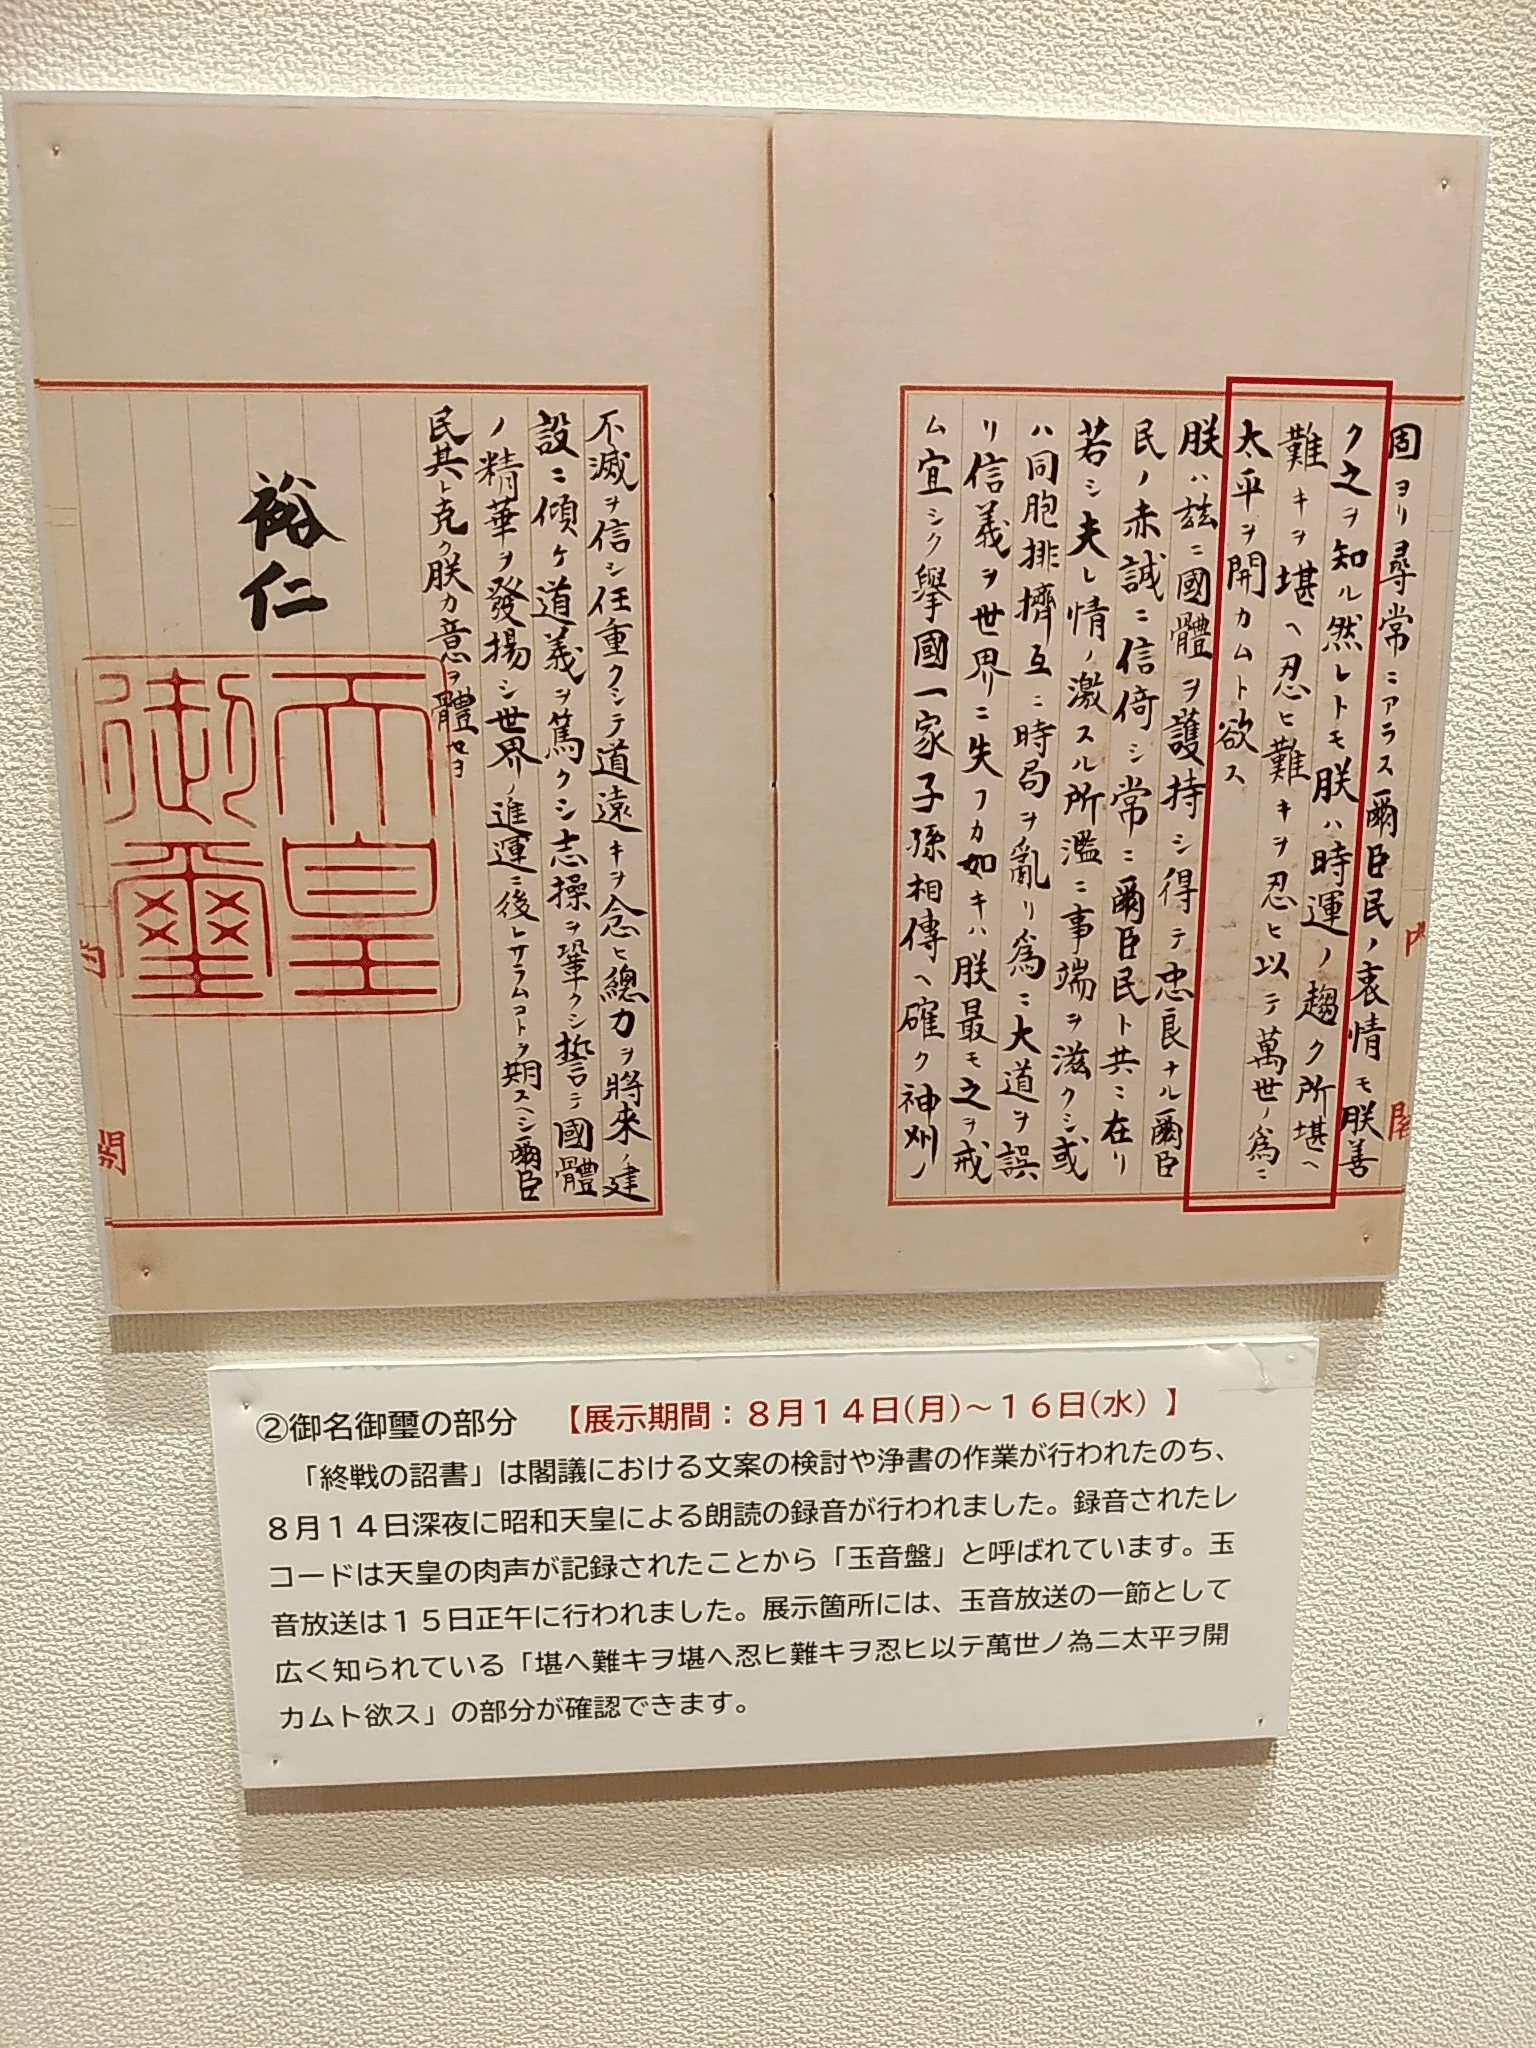 周ヨリ尋常ニアラス爾臣民ノ衷情モ朕善
ク之ヲ知ル然レトモ朕ハ時運ノ趨ク所堪ヘ
難キヲ堪ヘ忍ヒ難キヲ忍ヒ以テ萬世ノ爲ニ
太平ヲ開カムト欲ス
朕ハ玆ニ國體ヲ護持シ得テ忠良ナル爾臣
民ノ赤誠ニ信倚シ常ニ爾臣民ト共ニ在リ
若シ夫レ情ノ激スル所濫ニ事端ヲ滋クシ或
ハ同胞排擠互ニ時局ヲ亂リ爲ニ大道ヲ誤
リ信義ヲ世界ニ失フカ如キハ朕最モ之ヲ戒
ム宜シク擧國一家子孫相傳ヘ確ク神州ノ
内閣
不滅ヲ信シ任重クシテ道遠キヲ念ヒ總力ヲ將來ノ建
設ニ傾ケ道義ヲ篤クシ志操ヲ鞏クシ誓テ國體
ノ精華ヲ發揚シ世界ノ進運ニ後レサラムコトヲ期スヘシ爾臣
民其レ克ク朕カ意ヲ體セヨ
裕仁
天皇
御璽
内閣
②御名御璽の部分 【展示期間：８月１４日(月)～１６日(水)】
「終戦の詔書」は閣議における文案の検討や浄書の作業が行われたのち、
８月１４日深夜に昭和天皇による朗読の録音が行われました。録音されたレ
コードは天皇の肉声が記録されたことから「玉音盤」と呼ばれています。玉
音放送は１５日正午に行われました。展示箇所には、玉音放送の一節として
広く知られている「堪ヘ難キヲ堪ヘ忍ヒ難キヲ忍ヒ以テ萬世ノ為ニ太平ヲ開
カムト欲ス」の部分が確認できます。